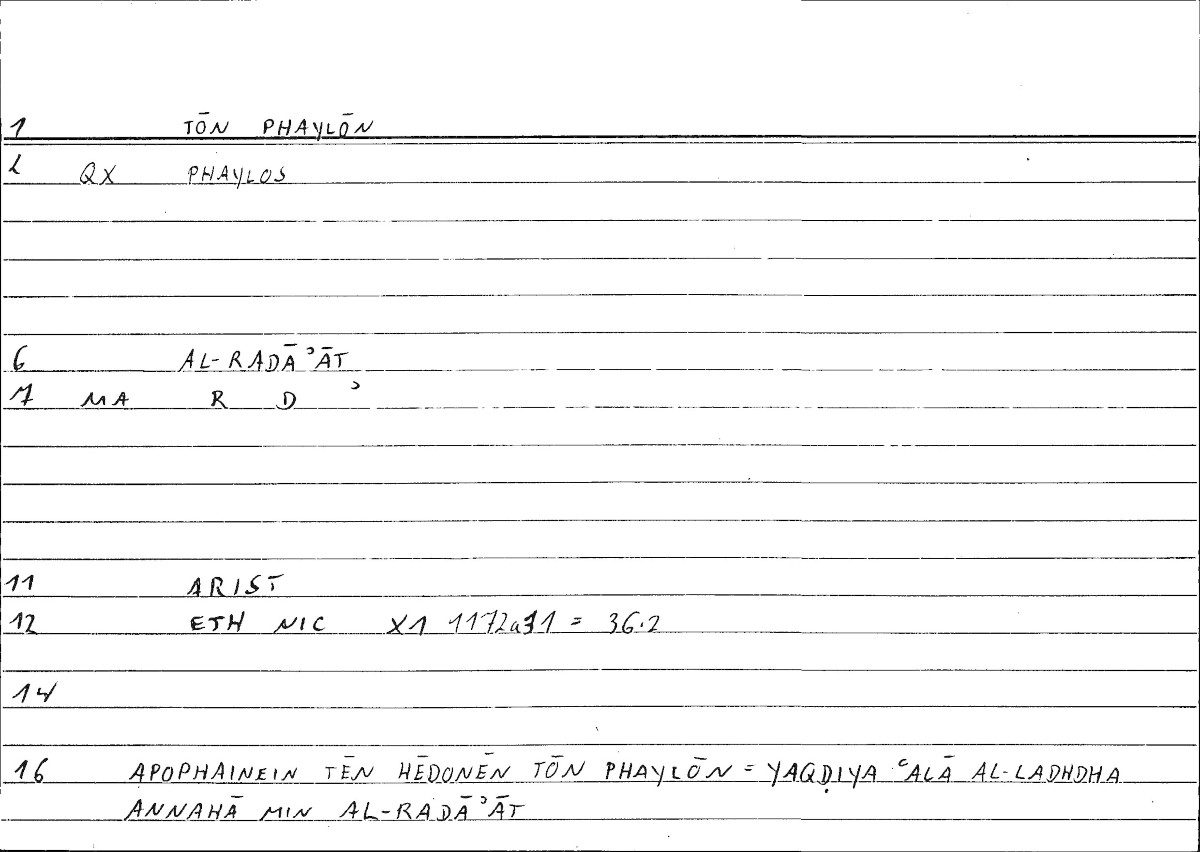 1 TŌN PHAYLŌN
2 QX PHAYLOS
6 AL-RADĀʾĀT
7 MA R D ʾ
11 ARIST
12 ETH NIC X1 1172a31 = 36.2
14
16 APOPHAINEIN TĒN HĒDONĒN TŌN PHAYLŌN = YAQḌIYA ʿALĀ AL-LADHDHA
ANNAHĀ MIN AL-RADĀʾĀT